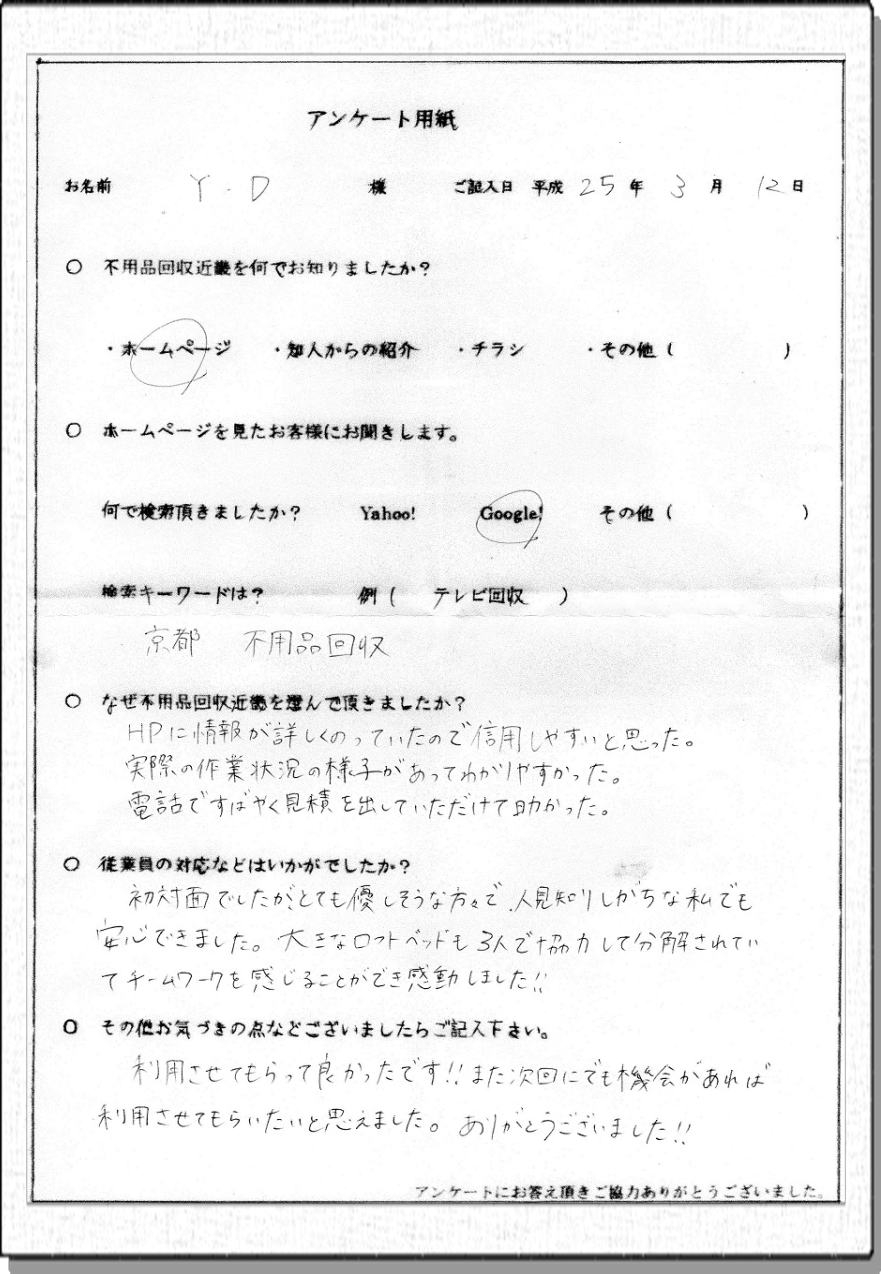 アンケート用紙
お名前 Y.D 様 ご記入日 平成 25 年 3 月 12 日
○ 不用品回収近畿を何でお知りましたか?
・ホームページ ・知人からの紹介 ・チラシ ・その他 ( )
○ ホームページを見たお客様にお聞きします。
何で検索頂きましたか? Yahoo! Google! その他 ( )
検索キーワードは? 例 ( テレビ回収 )
京都 不用品回収
○ なぜ不用品回収近畿を選んで頂きましたか?
HPに情報が詳しくのっていたので信用しやすいと思った。
実際の作業状況の様子があってわかりやすかった。
電話ですばやく見積を出していただけて助かった。
○ 従業員の対応などはいかがでしたか?
初対面でしたが、とても優しそうな方々で、人見知りしがちな私でも
安心できました。大きなロフトベッドも3人で協力して分解されてい
てチームワークを感じることができ感動しました!!
○ その他お気づきの点などございましたらご記入下さい。
利用させてもらって良かったです!!また次回にでも機会があれば
利用させてもらいたいと思えました。ありがとうございました!!
アンケートにお答え頂きご協力ありがとうございました。